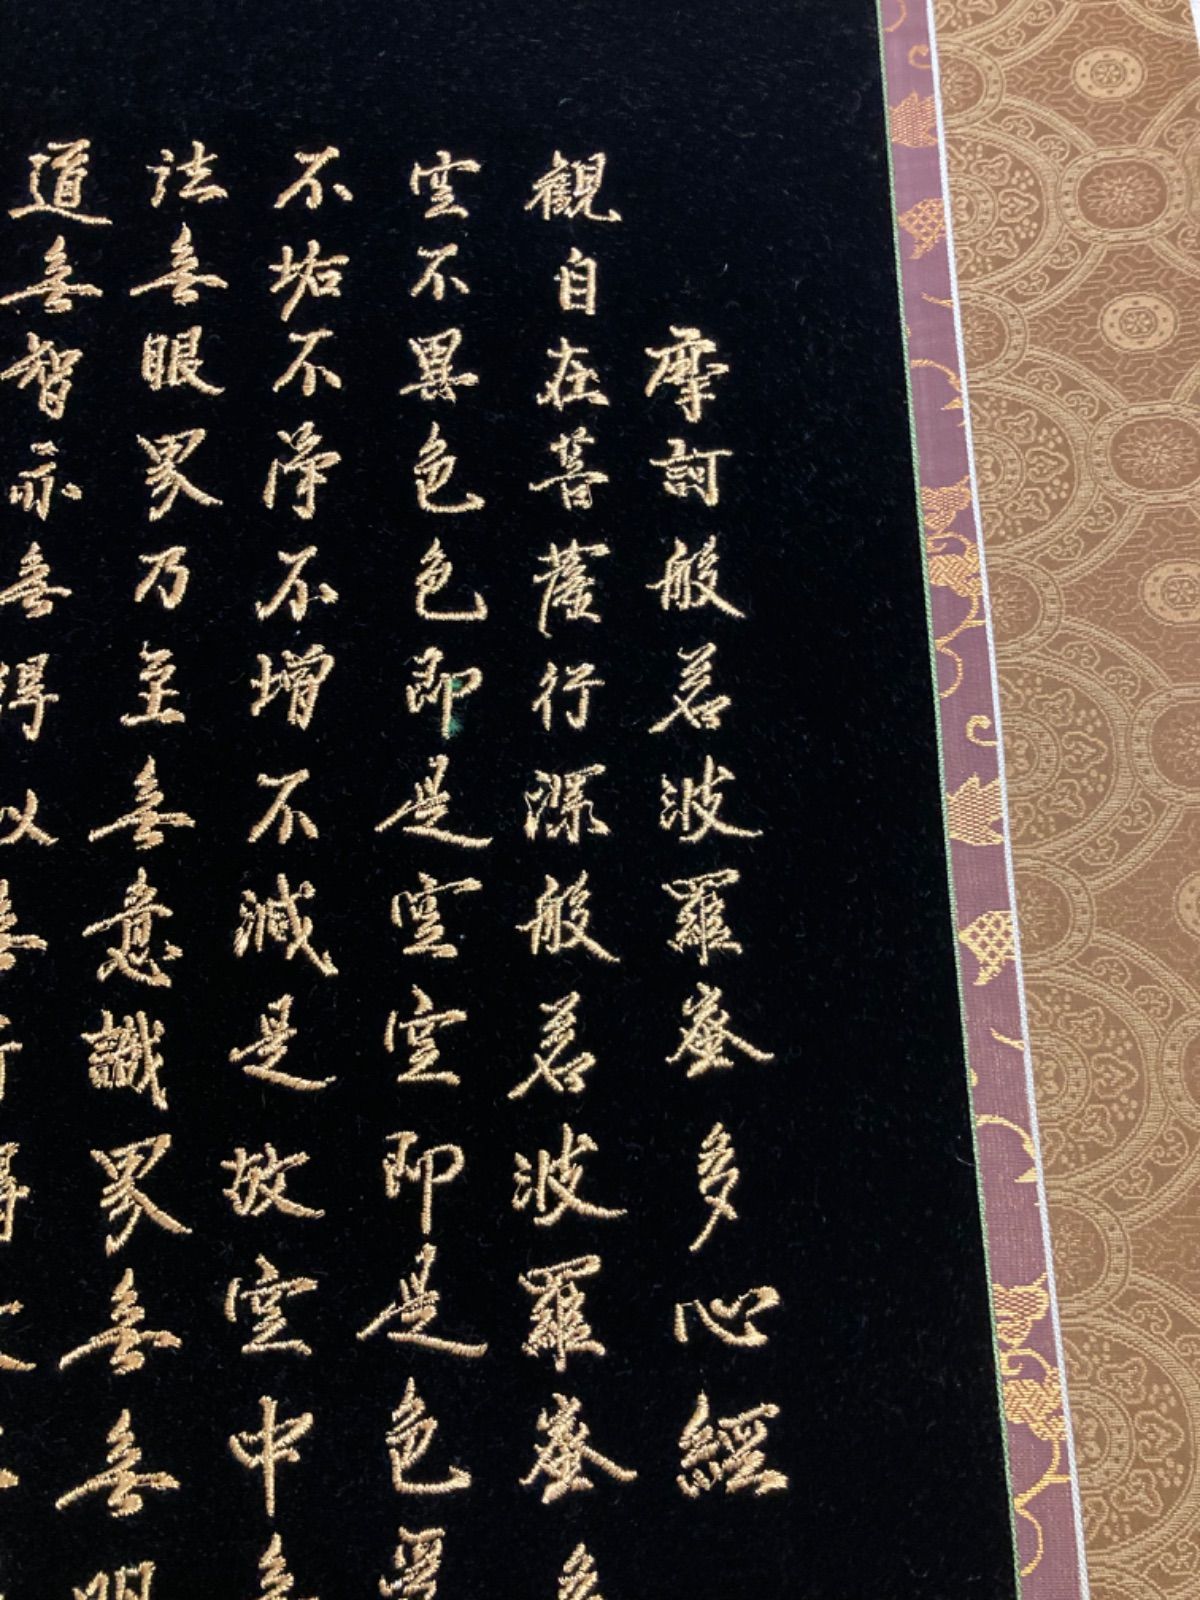 摩訶般若波羅蜜多心經
觀自在菩薩行深般若波羅蜜多
空不異色色即是空空即是色受
不垢不淨不增不減是故空中無
法無眼界乃至無意識界無無明
道無智亦無得以無所得